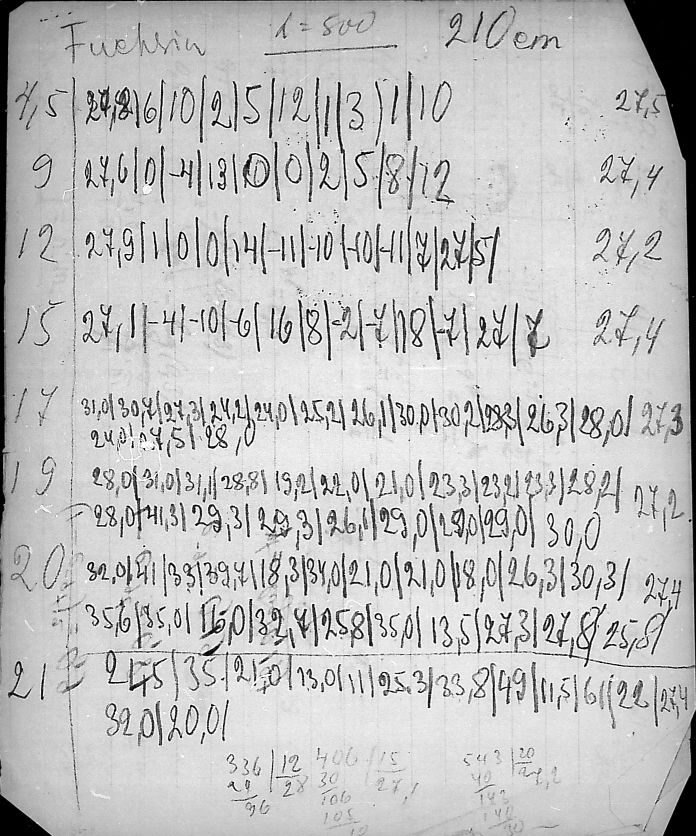 Fuchsin d=800 210 cm
4,5 | 27,8|6|10|2|5|12|1|3|1|10 27,5
9 27,6|0|-4|13|10|0|2|5|8|12 27,4
12 27,9|1|0|0|14|-11|-10|-10|-11|7|27|5| 27,2
15 27,1|-4|-10|-6|16|8|-2|-7|18|-7|27|7 27,4
17 31,0|30,7|27,3|24,2|24,0|25,2|26,1|30,0|30,2|23,3|26,3|28,0| 27,3
24,0|27,5|28,0
19 28,0|31,0|31,1|28,8|19,2|22,0|21,0|23,3|23,2|23,3|28,2| 27,2
28,0|41,3|29,3|29,3|26,1|29,0|28,0|29,0| 30,0
20 32,0|41|33|39,7|18,3|34,0|21,0|21,0|18,0|26,3|30,3| 27,4
35,6|35,0|16,0|32,7|25,8|35,0|13,5|27,3|27,8|25,8|
21 21,5|35|21,0|13,0|11|25,3|33,8|49|11,5|61|22|27,4
32,0|20,0|
336 |12 406 |15 543 |20
24 28 30 27,1 40 27,2
96 106 143
105 140